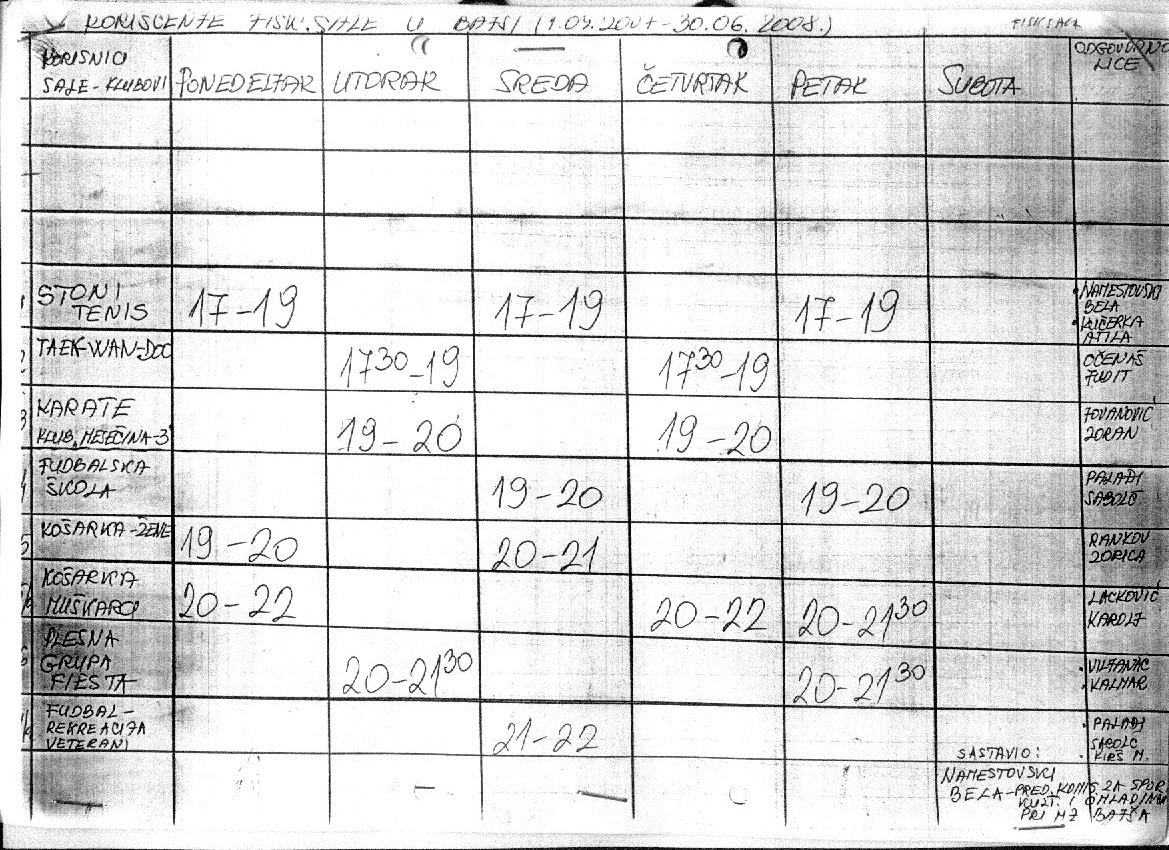 KORIŠĆENJE FISK. SALE U BAJŠI (1.09.2007-30.06.2008.) FISK SALA
KORISNICI SALE-KLUBOVI PONEDELJAK UTORAK SREDA ČETVRTAK PETAK SUBOTA ODGOVORNO LICE
1 STONI TENIS 17-19 17-19 17-19 • NAMESTOVSKI BELA • KUČERKA ATILA
2 TAEK-WAN-DOO 17³⁰-19 17³⁰-19 OČENAŠ JUDIT
3 KARATE KLUB „MESEČINA-3" 19-20 19-20 JOVANOVIĆ ZORAN
4 FUDBALSKA ŠKOLA 19-20 19-20 PALAĐI SABOLČ
5 KOŠARKA-ŽENE 19-20 20-21 RANKOV ZORICA
KOŠARKA MUŠKARCI 20-22 20-22 20-21³⁰ LACKOVIĆ KAROLJ
PLESNA GRUPA FIESTA 20-21³⁰ 20-21³⁰ • VILJANAC • KALMAR
FUDBAL-REKREACIJA VETERANI 21-22 • PALAĐI SABOLČ • KIRŠ M.
SASTAVIO:
NAMESTOVSKI
BELA-PRED. KOMIS. ZA SPOR
KULT. I OMLADINU
PRI MZ BAJŠA